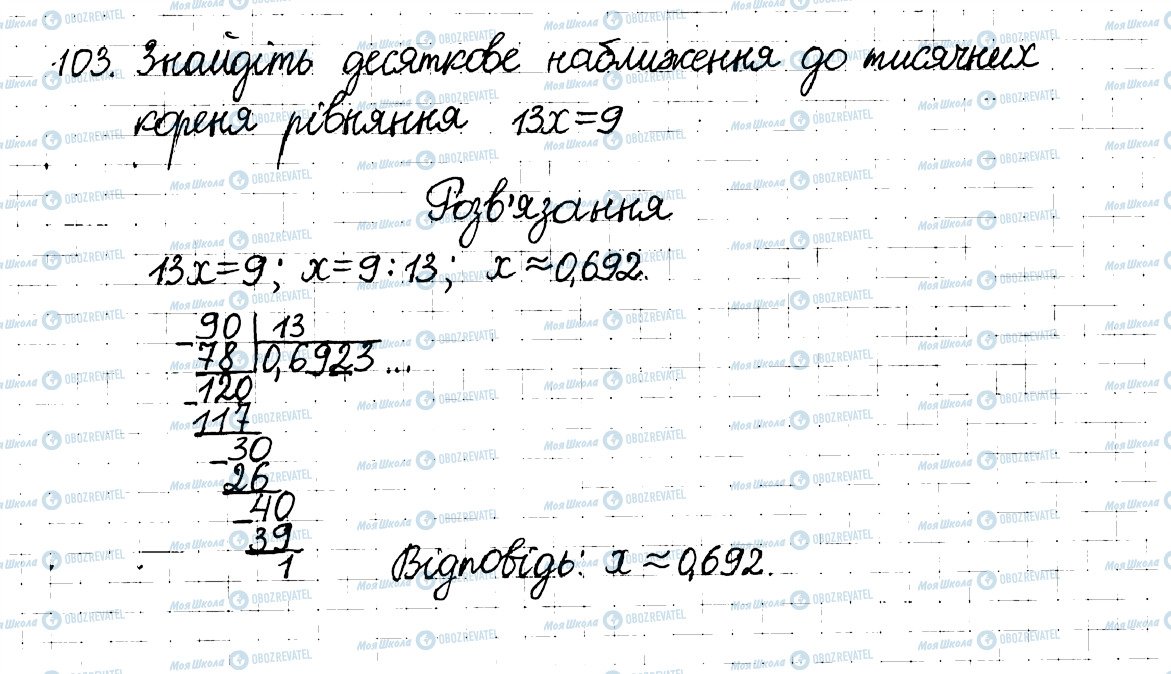 103. Знайдіть десяткове наближення до тисячних
кореня рівняння 13x=9
Розв'язання
13x=9; x=9:13; x≈0,692.
90 | 13
78 | 0,6923...
-120
117
-30
26
-40
39
1
Відповідь: x≈0,692.